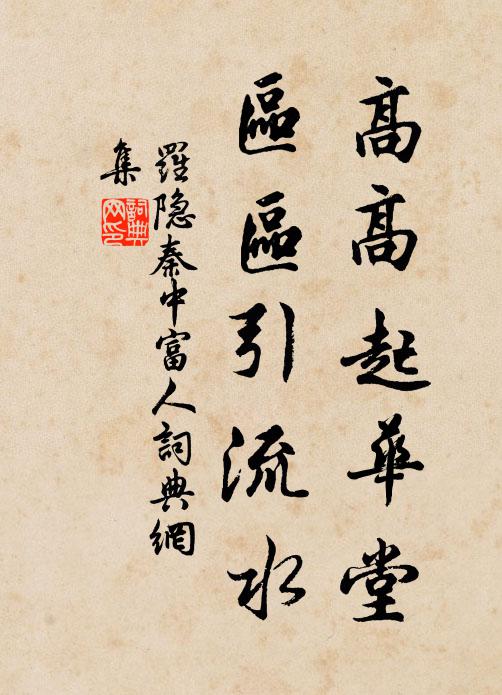 高高起華堂
區區引流水
羅隐秦中富人詞典網
集
詞典
网印